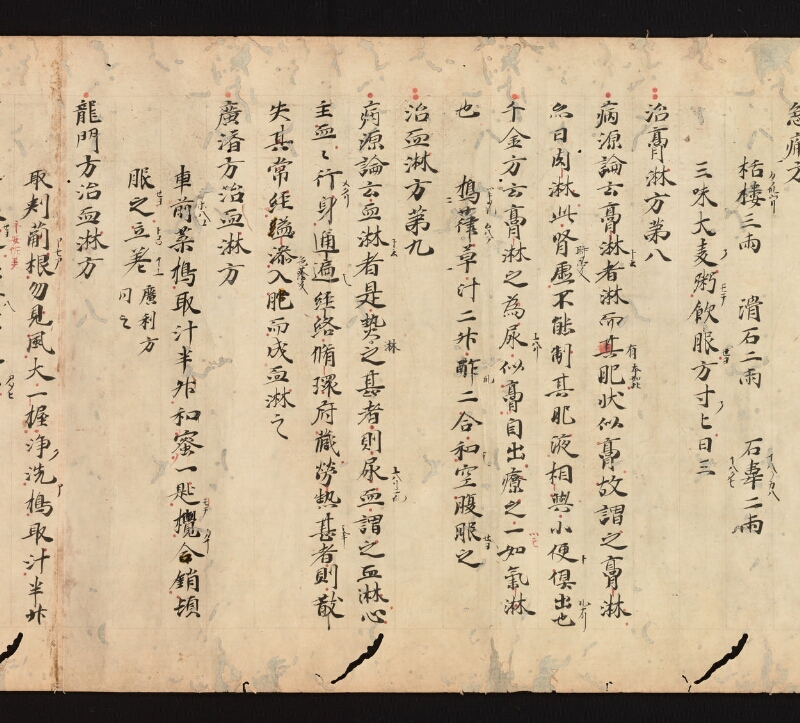 急痛方
栝樓三兩 滑石二兩 石韋二兩
三味大麦粥飲服方寸匕日三
治膏淋方第八
病源論云膏淋者淋而其肥状似膏故謂之膏淋
亦曰肉淋此腎虛不能制其肥液相與小便俱出也
千金方云膏淋之為尿似膏自出療之一如氣淋
也 搗葎草汁二升酢二合和空腹服之
治血淋方第九
病源論云血淋者是熱之甚者則尿血謂之血淋心
主血〻行身通遍経絡脩環府蔵勞熱甚者則散
失其常経溢滲入肥而成血淋之
廣濟方治血淋方
車前菜搗取汁半升和蜜一匙攪合銷頓
服之立差 廣利方同之
龍門方治血淋方
取判蘭根勿見風大一握浄洗搗取汁半升